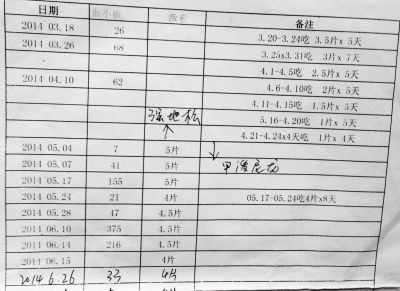 日期 血小板 激素 备注
2014 03.18 26 3.20-3.24吃 3.5片x 5天
2014 03.26 68 3.25x3.31吃 3片x 7天
4.1-4.5吃 2.5片x 5天
2014 04.10 62 4.6-4.10吃 2片x 5天
4.11-4.15吃 1.5片x 5天
强地松 5.16-4.20吃 1片x 5天
↑ 4.21-4.24x4天吃 1片x 4天
2014 05.04 7 5片 ↓
2014 05.07 41 5片 甲泼尼龙
2014 05.17 155 5片
2014 05.24 21 4片 05.17-05.24吃4片x8天
2014 05.28 47 4.5片
2014 06.10 375 4.5片
2014 06.14 216 4.5片
2014 06.15 4片
2014 6.26 33 4片